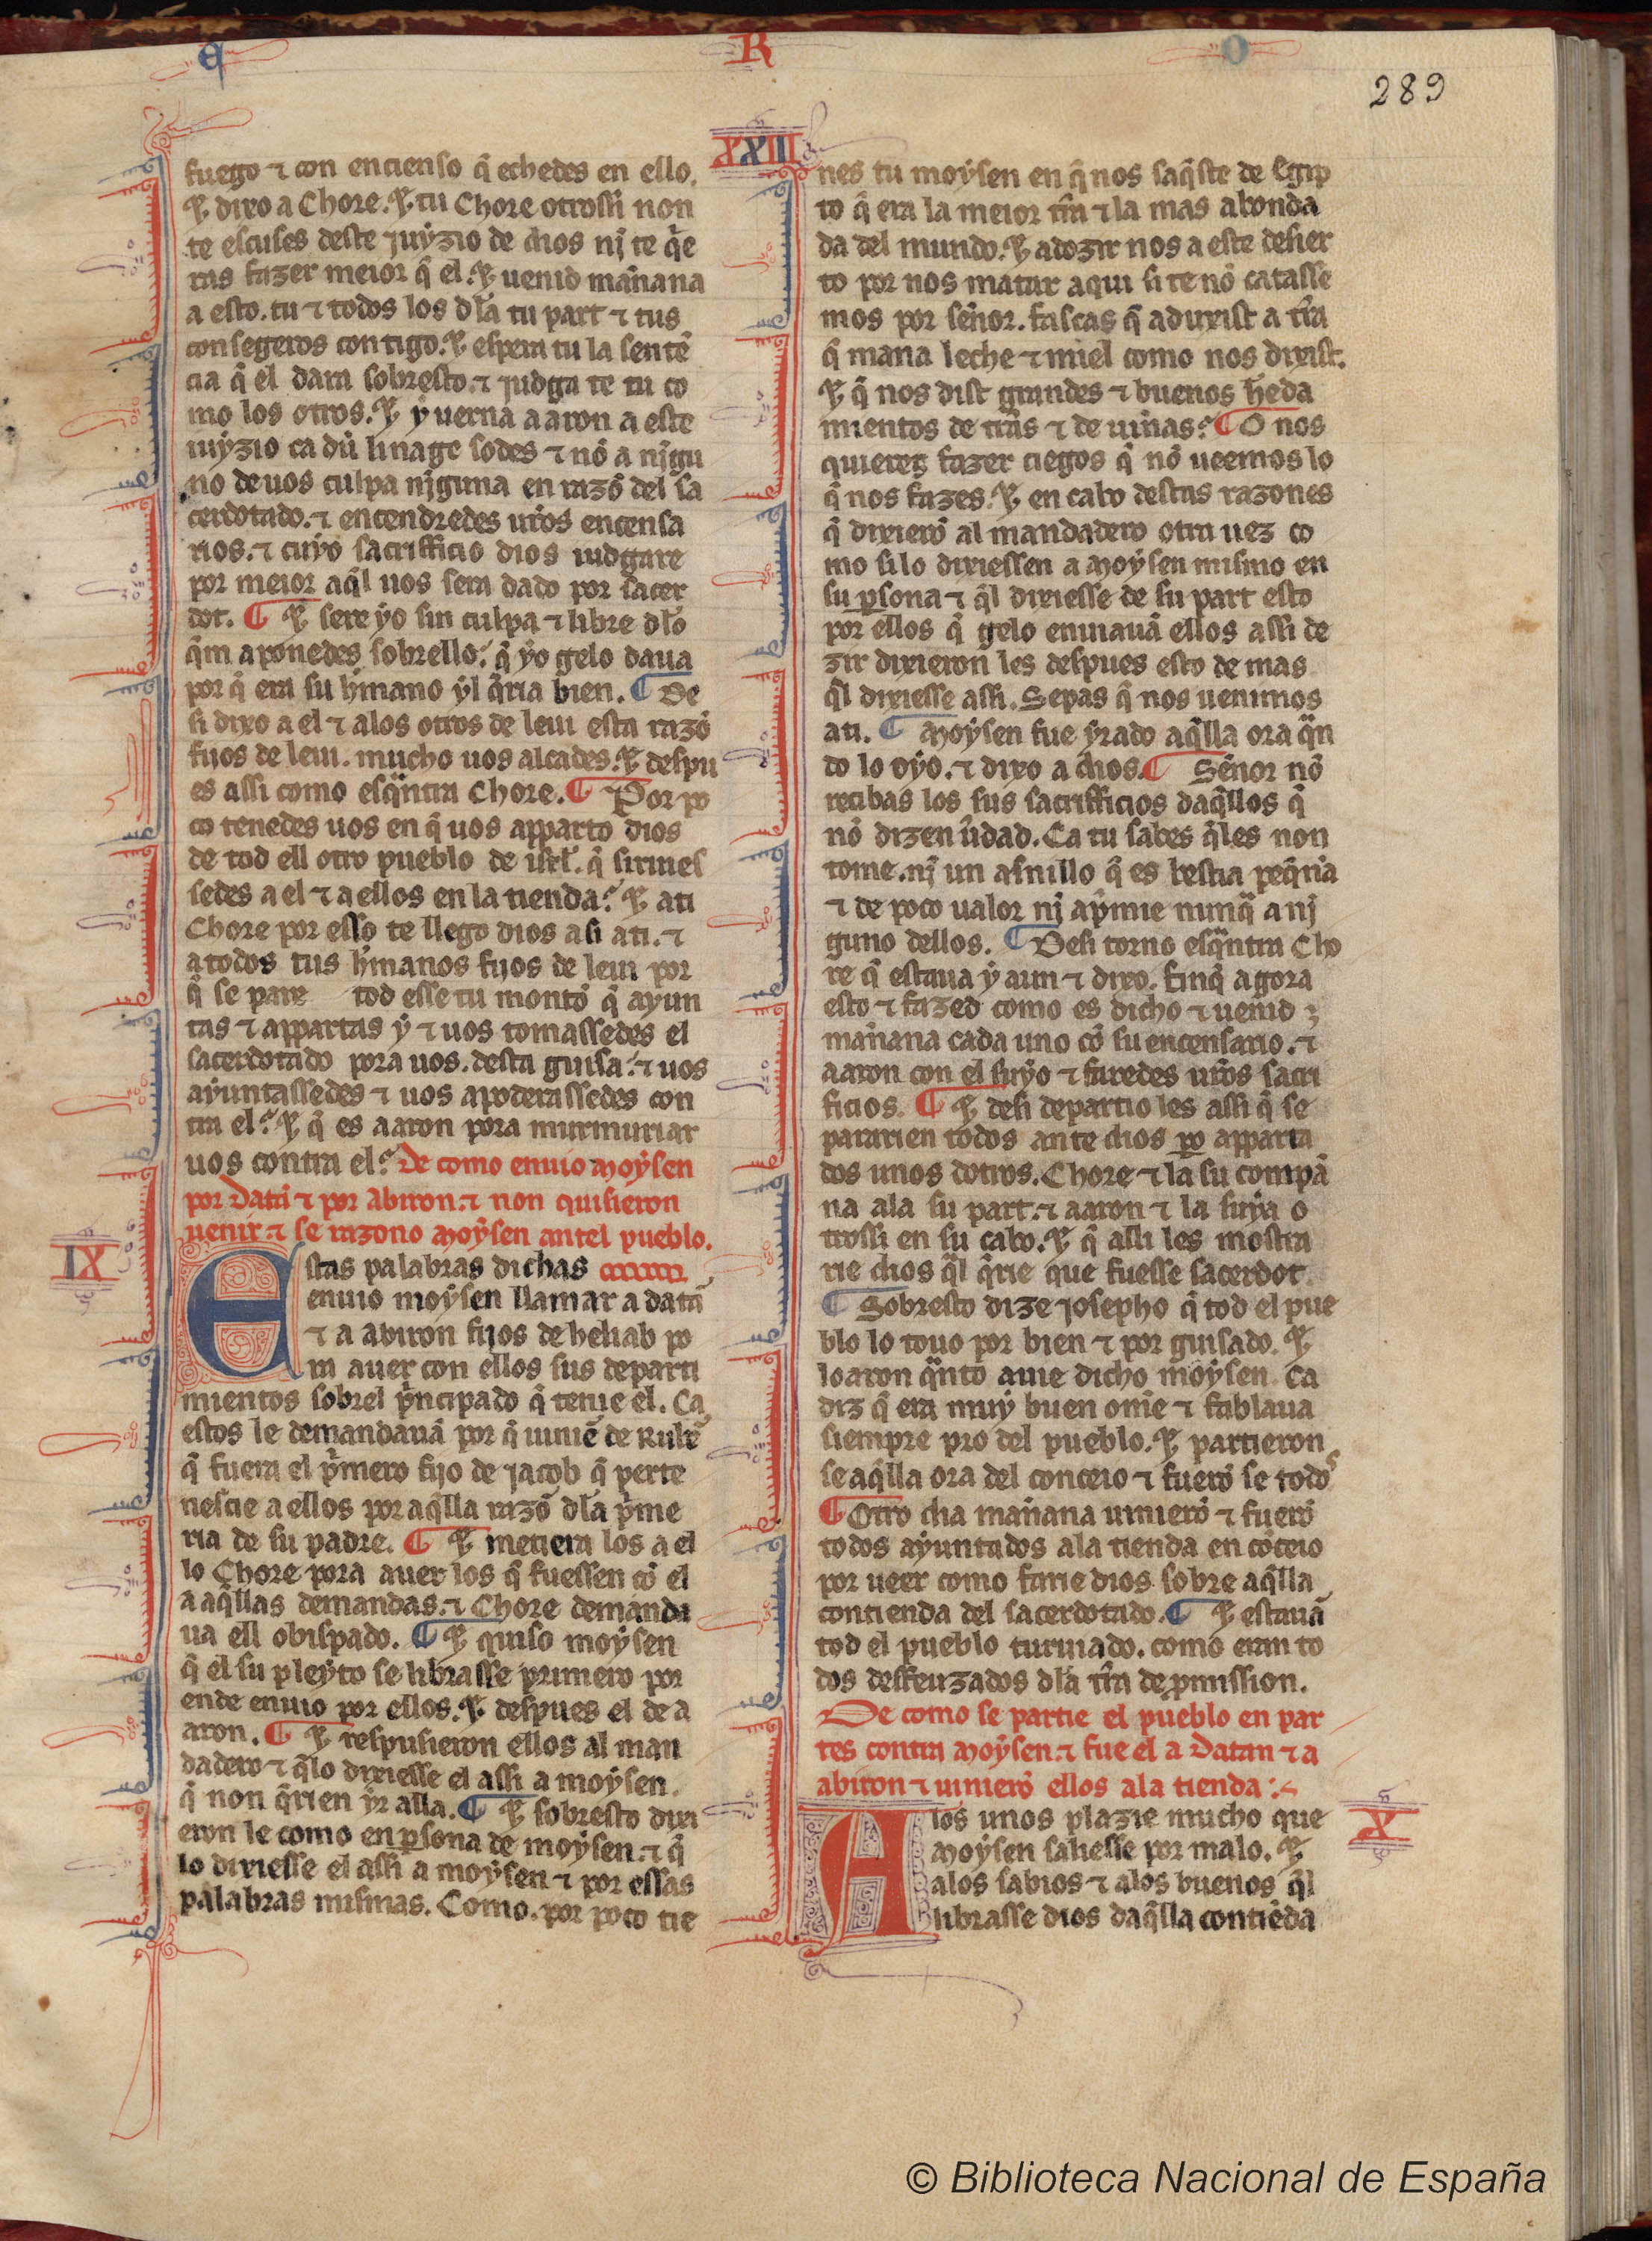 e R O
289
XXIII
fuego ⁊ con encienso q̃ echedes en ello.
⁊ dixo a Chore. ⁊ tu Chore otrossi non
te escuses deste juyzio de dios nj te q̃e
ras fazer meior q̃ el. ⁊ uenid mañana
a esto. tu ⁊ todos los dla tu part ⁊ tus
consegeros contigo. ⁊ espera tu la sentẽ
cia q̃ el dara sobresto. ⁊ judga te tu co
mo los otros. ⁊ y uerna aaron a este
iuyzio ca dũ linage sodes ⁊ nõ a nj̃gu
no de uos culpa nj̃guna en razõ del sa
cerdotado. ⁊ encendredes ur̃os encensa
rios. ⁊ cuyo sacrifficio dios iudgare
por meior aq̃l uos sera dado por sacer
dot. ¶ ⁊ sere yo sin culpa ⁊ libre dlo
q̃m aponedes sobrello. q̃ yo gelo daua
por q̃ era su hm̃ano yl q̃ria bien. ¶ De
si dixo a el ⁊ alos otros de leui esta razõ
fijos de leui. mucho uos alçades. ⁊ despu
es assi como esq̃ntra Chore. ¶ Por po
co tenedes uos en q̃ uos apparto dios
de tod ell otro pueblo de isrl̃. q̃ siruies
sedes a el ⁊ a ellos en la tienda. ⁊ ati
Chore por esso te llego dios assi ati. ⁊
a todos tus hm̃anos fijos de leui por
q̃ se pare tod esse tu montõ q̃ ayun
tas ⁊ appartas y ⁊ uos tomassedes el
sacerdotado pora uos. desta guisa. ⁊ uos
ayuntassedes ⁊ uos apoderassedes con
tra el. ⁊ q̃ es aaron pora murmuriar
uos contra el. De como enuio Moysen
por Datã ⁊ por Abiron. ⁊ non quisieron
uenir. ⁊ se razono Moysen antel pueblo.
IX
Estas palabras dichas
enuio moysen llamar a datã
⁊ a abiron fijos de heliab po
ra auer con ellos sus departi
mientos sobrel p̃ncipado q̃ tenie el. Ca
estos le demandauã por q̃ uiniẽ de Rubẽ
q̃ fuera el p̃mero fijo de jacob q̃ perte
nescie a ellos por aq̃lla razõ dla p̃me
ria de su padre. ¶ ⁊ metiera los a el
lo Chore pora auer los q̃ fuessen cõ el
a aq̃llas demandas. ⁊ Chore demanda
ua ell obispado. ¶ ⁊ quiso moysen
q̃ el su pleyto se librasse primero por
ende enuio por ellos. ⁊ despues el de a
aron. ¶ ⁊ respusieron ellos al man
dadero ⁊ q̃lo dixiesse el assi a moysen.
q̃ non q̃rien yr alla. ¶ ⁊ sobresto dixi
eron le como en p̱sona de moysen. ⁊ q̃
lo dixiesse el assi a moysen ⁊ por essas
palabras mismas. Como. por poco tie
nes tu moysen en q̃ nos saq̃ste de Egip
to q̃ era la meior tr̃ra ⁊ la mas abonda
da del mundo. ⁊ adozir nos a este desier
to por nos matar aqui si te nõ catasse
mos por señor. fascas q̃ aduxist a tr̃ra
q̃ mana leche ⁊ miel como nos dixist.
⁊ q̃ nos dist grandes ⁊ buenos heda
mientos de tr̃ras ⁊ de uiñas. ¶ O nos
quieres fazer ciegos q̃ nõ ueemos lo
q̃ nos fazes. ⁊ en cabo destas razones
q̃ dixierõ al mandadero otra uez co
mo silo dixiessen a Moysen mismo en
su p̱sona ⁊ q̃l dixiesse de su part esto
por ellos q̃ gelo enuiauã ellos assi de
zir dixieron les despues esto de mas
q̃l dixiesse assi. Sepas q̃ nos uenimos
ati. ¶ Moysen fue yrado aq̃lla ora q̃n
do lo oyo. ⁊ dixo a dios. ¶ Señor nõ
recibas los sus sacrifficios daq̃llos q̃
nõ dizen ũdad. Ca tu sabes q̃les non
tome. nj un asnillo q̃ es bestia peq̃ña
⁊ de poco ualor nj ap̃mie nunq̃ a nj
guno dellos. ¶ Desi torno esq̃ntra Cho
re q̃ estaua y aun ⁊ dixo. finq̃ agora
esto ⁊ fazed como es dicho ⁊ uenid
mañana cada uno cõ su encensario. ⁊
aaron con el suyo ⁊ faredes ur̃os sacri
ficios. ¶ ⁊ desi departio les assi q̃ se
pararien todos ante dios p̱o apparta
dos unos dotros. Chore ⁊ la su compã
na ala su part. ⁊ aaron ⁊ la suya o
trossi en su cabo. ⁊ q̃ assi les mostra
rie dios q̃l q̃rie que fuesse sacerdot.
¶ Sobresto dize josepho q̃ tod el pue
blo lo touo por bien ⁊ por guisado. ⁊
loaron q̃nto auie dicho moysen. Ca
diz q̃ era muy buen om̃e ⁊ fablaua
siempre pro del pueblo. ⁊ partieron
se aq̃lla ora del conceio ⁊ fuerõ se todos
¶ Otro dia mañana uinierõ ⁊ fuerõ
todos ayuntados ala tienda en cõceio
por ueer como farie dios sobre aq̃lla
contienda del sacerdotado. ¶ ⁊ estauã
tod el pueblo turuiado. como eran to
dos desfeuzados dla tr̃ra de p̱mission.
De como se partie el pueblo en par
tes contra Moysen. ⁊ fue el a Datan ⁊ a
abiron ⁊ uinierõ ellos ala tienda :~
X
Alos unos plazie mucho que
Moysen saliesse por malo. ⁊
alos sabios ⁊ alos buenos q̃l
librasse dios daq̃lla contiẽda
© Biblioteca Nacional de España